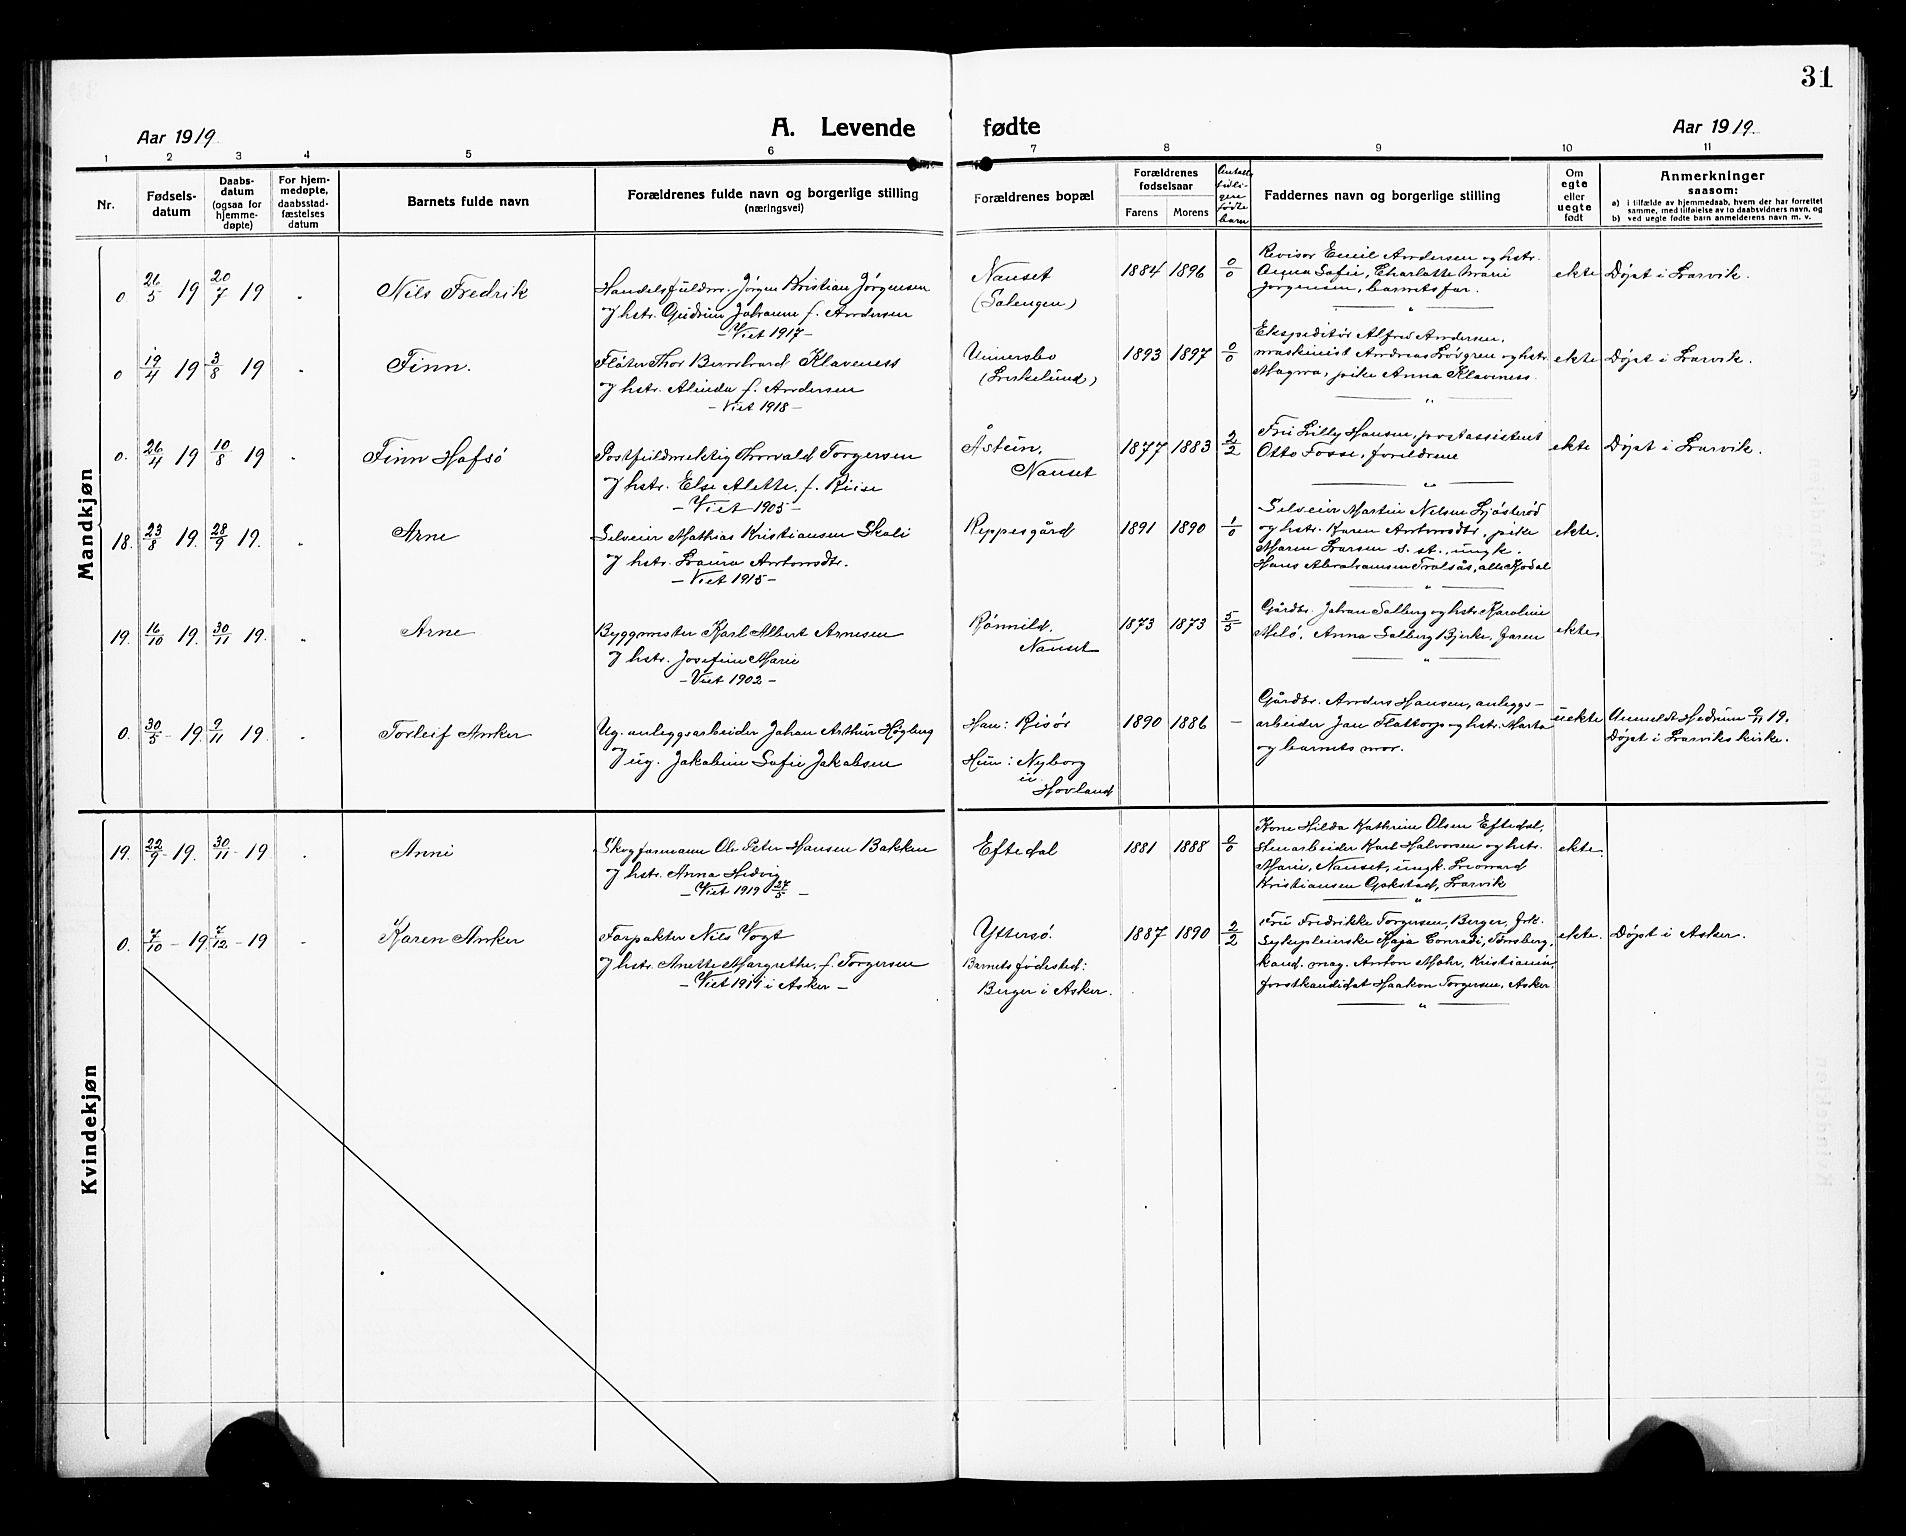 31
Aar 1919.
A. Levende fødte
Aar 1919.
1 2 3 4 5 6 7 8 9 10 11
Nr.
Fødsels-
datum
Daabs-
datum
(ogsaa for
hjemme-
døpte)
For hjem-
medøpte,
daabsstad-
fæstelses
datum
Barnets fulde navn
Forældrenes fulde navn og borgerlige stilling
(næringsvei)
Forældrenes bopæl
Forældrenes
fødselsaar
Farens Morens
Antall
tidli-
gere
fødte
barn
Faddernes navn og borgerlige stilling
Om
egte
eller
uegte
født
Anmerkninger
saasom:
a) i tilfælde av hjemmedaab, hvem der har forrettet
samme, med tilføielse av to daabsvidners navn, og
b) ved uegte fødte barn anmelderens navn m. v.
Mandkjøn
0. 26/5 19 20/7 19 „ Nils Fredrik
Handelsfuldm. Jørgen Kristian Jørgensen
og hstr. Gudrun Johanne f. Andersen
- Viet 1917 -
Nanset
(Salengen)
1884 1896 0/0
Revisor Emil Andersen og hstr.
Anna Sofie, Charlotte Marie
Jørgensen, barnets far.
ekte Døpt i Larvik.
0 19/4 19 3/8 19 „ Finn.
Fløter Thor Bernhard Klaveness
og hstr. Alinda f. Andersen
- Viet 1918 -
Unnersbo
(Lerkelund)
1893 1897 0/0
Ekspeditør Alfred Andersen,
maskinist Andreas Løvgren og hstr.
Magna, pike Anna Klaveness.
ekte Døpt i Larvik.
0. 26/4 19 10/8 19 „ Finn Hafsø
Postfuldmektig Thorvald Torgersen
og hstr. Else Alette, f. Riise
- Viet 1905 -
Åstein,
Nanset
1877 1883 2/2
Fru Lilly Hansen, postassistent
Otto Fosse, foreldrene
ekte Døpt i Larvik.
18. 23/8 19. 28/9 19. „ Arne
Selveier Mathias Kristiansen Skali
og hstr. Laura Antonsdtr.
- Viet 1915 -
Reppesgård
1891 1890 1/0
Selveier Martin Nilsen Ljøsterød
og hstr. Karen Antonsdtr, pike
Maren Larsen s. st., ungk.
Hans Abrahamsen Trolsås, alle Kodal
ekte.
19. 16/10 19. 30/11 19. „ Arne
Byggmester Karl Albert Arnesen
og hstr. Josefine Marie
- Viet 1902 -
Rønnild,
Nanset
1873 1873 5/5
Gårdbr. Johan Solberg og hstr. Karoline
Melø, Anna Solberg Bjerke, Faren
ekte.
0. 30/5 - 19. 9/11 19. „ Torleif Anker
Ug. anleggsarbeider Johan Arthur Högberg
og ug. Jakobine Sofie Jakobsen
Han: Risør
Hun: Nyborg
u.
Hovland
1890 1886 -
Gårdbr. Anders Hansen, anleggs-
arbeider Jan Flattorp og hstr. Marta
og barnets mor.
uekte Anmeldt Hedrum 9/11 19.
Døpt i Larviks kirke.
Kvindekjøn
19. 22/9 - 19. 30/11 - 19 „ Anni
Skogformann Ole Peter Hansen Bakken
og hstr. Anna Hedvig
- Viet 1919 27/5 -
Eftedal
1881 1888 0/0
Kone Hilda Kathrine Olsen Eftedal,
Stenarbeider Karl Halvorsen og hstr.
Marie, Nanset, ungk. Leonard
Kristiansen Opkstad, Larvik
ekte.
0. 7/10 - 19. 7/12 - 19 „ Karen Anker
Forpakter Nils Vogt
og hstr. Anette Margrethe, f. Torgersen
- Viet 1911 i Asker -
Yttersø.
Barnets fødested:
Berger i Asker.
1887 1890 2/2
Fru Fredrikke Torgersen, Berger, frk.
Sykepleierske Kaja Conradi, Tønsberg,
kand. mag. Anton Mohr, Kristiania,
forstkandidat Haakon Torgersen, Asker
ekte. Døpt i Asker.